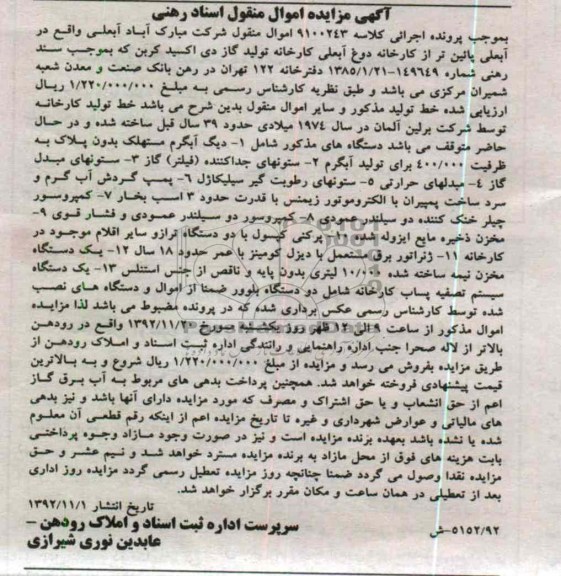 آگهی مزایده اموال منقول اسناد رهنی
بموجب پرونده اجرائی کلاسه ۹۱۰۰۲۴۳ اموال منقول شرکت مبارک آباد آبعلی واقع در
آبعلی پائین تر از کارخانه دوغ آبعلی کارخانه تولید گاز دی اکسید کربن که بموجب سند
رهنی شماره ۱۴۹۶۴۹-۱۳۸۵/۱/۲۱ دفترخانه ۱۲۲ تهران در رهن بانک صنعت و معدن شعبه
شمیران مرکزی می باشد و طبق نظریه کارشناس رسمی به مبلغ ۱/۲۲۰/۰۰۰/۰۰۰ ریال
ارزیابی شده خط تولید مذکور و سایر اموال منقول بدین شرح می باشد خط تولید کارخانه
توسط شرکت برلین آلمان در سال ۱۹۷۴ میلادی حدود ۳۹ سال قبل ساخته شده و در حال
حاضر متوقف می باشد دستگاه های مذکور شامل ۱- دیگ آبگرم مستهلک بدون پلاک به
ظرفیت ۴۰۰/۰۰۰ برای تولید آبگرم ۲- ستونهای جداکننده (فیلتر) گاز ۳- ستونهای مبدل
گاز ۴- مبدلهای حرارتی ۵- ستونهای رطوبت گیر سیلیکاژل ۶- پمپ گردش آب گرم و
سرد ساخت پمپیران با الکتروموتور زیمنس با قدرت حدود ۳ اسب بخار ۷- کمپروسور
چیلر خنک کننده دو سیلندر عمودی ۸- کمپروسور دو سیلندر عمودی و فشار قوی ۹-
مخزن ذخیره مایع ایزوله شده ۱۰- پرکنی کپسول با دو دستگاه ترازو سایر اقلام موجود در
کارخانه ۱۱- ژنراتور برق مستعمل با دیزل کومینز با عمر حدود ۱۸ سال ۱۲- یک دستگاه
مخزن نیمه ساخته شده ۱۰/۰۰۰ لیتری بدون پایه و ناقص از جنس استنلس ۱۳- یک دستگاه
سیستم تصفیه پساب کارخانه شامل دو دستگاه بلوور ضمنا از اموال و دستگاه های نصب
شده توسط کارشناس رسمی عکس برداری شده که در پرونده مضبوط می باشد لذا مزایده
اموال مذکور از ساعت ۹ الی ۱۲ ظهر روز یکشنبه مورخ ۱۳۹۲/۱۱/۲۰ واقع در رودهن
بالاتر از لاله صحرا جنب اداره راهنمایی و رانندگی اداره ثبت اسناد و املاک رودهن از
طریق مزایده بفروش می رسد و مزایده از مبلغ ۱/۲۲۰/۰۰۰/۰۰۰ ریال شروع و به بالاترین
قیمت پیشنهادی فروخته خواهد شد. همچنین پرداخت بدهی های مربوط به آب برق گاز
اعم از حق انشعاب و یا حق اشتراک و مصرف که مورد مزایده دارای آنها باشد و نیز بدهی
های مالیاتی و عوارض شهرداری و غیره تا تاریخ مزایده اعم از اینکه رقم قطعی آن معلوم
شده یا نشده باشد بعهده برنده مزایده است و نیز در صورت وجود مازاد وجوه پرداختی
بابت هزینه های فوق از محل مازاد به برنده مزایده مسترد خواهد شد و نیم عشر و حق
مزایده نقدا وصول می گردد ضمنا چنانچه روز مزایده تعطیل رسمی گردد مزایده روز اداری
بعد از تعطیلی در همان ساعت و مکان مقرر برگزار خواهد شد.
تاریخ انتشار ۱۳۹۲/۱۱/۱
سرپرست اداره ثبت اسناد و املاک رودهن –
عابدین نوری شیرازی
۵۱۵۲/۹۲-ش